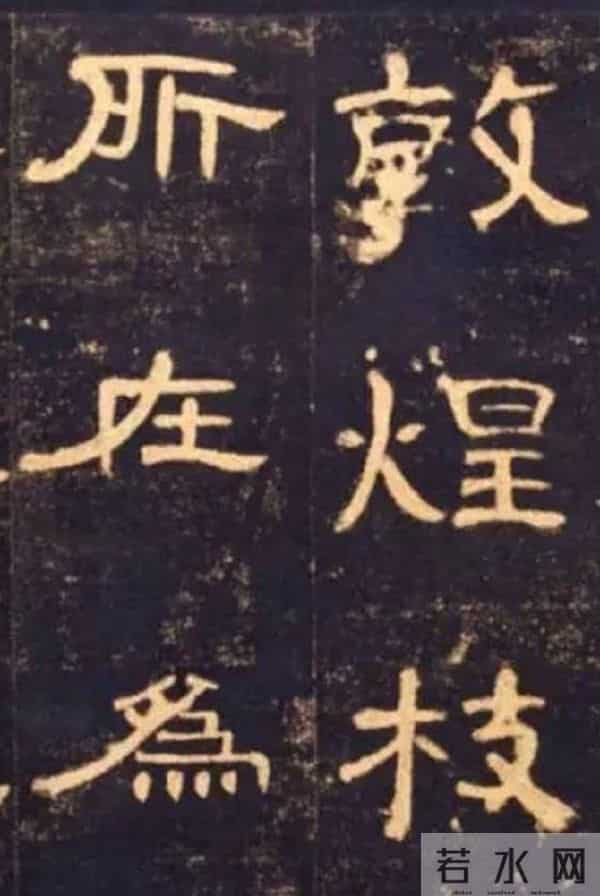 敦煌枝
所在為
若水网